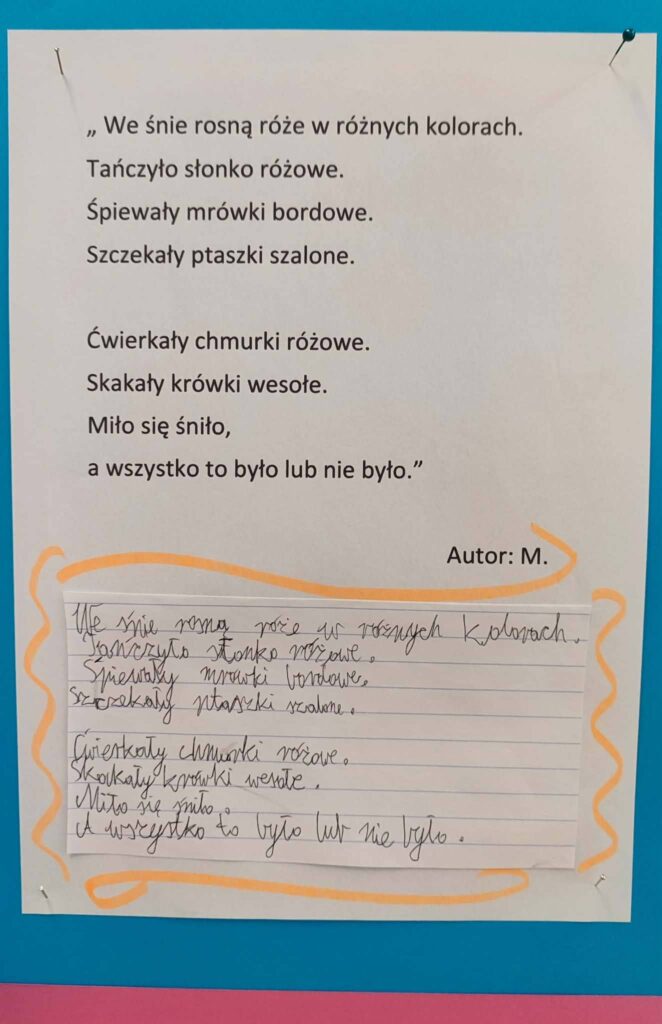 „ We śnie rosną róże w różnych kolorach.
Tańczyło słonko różowe.
Śpiewały mrówki bordowe.
Szczekały ptaszki szalone.
Ćwierkały chmurki różowe.
Skakały krówki wesołe.
Miło się śniło,
a wszystko to było lub nie było.”
Autor: M.
We śnie rosną róże w różnych kolorach.
Tańczyło słonko różowe.
Śpiewały mrówki bordowe.
Szczekały ptaszki szalone.
Ćwierkały chmurki różowe.
Skakały krówki wesołe.
Miło się śniło.
A wszystko to było lub nie było.